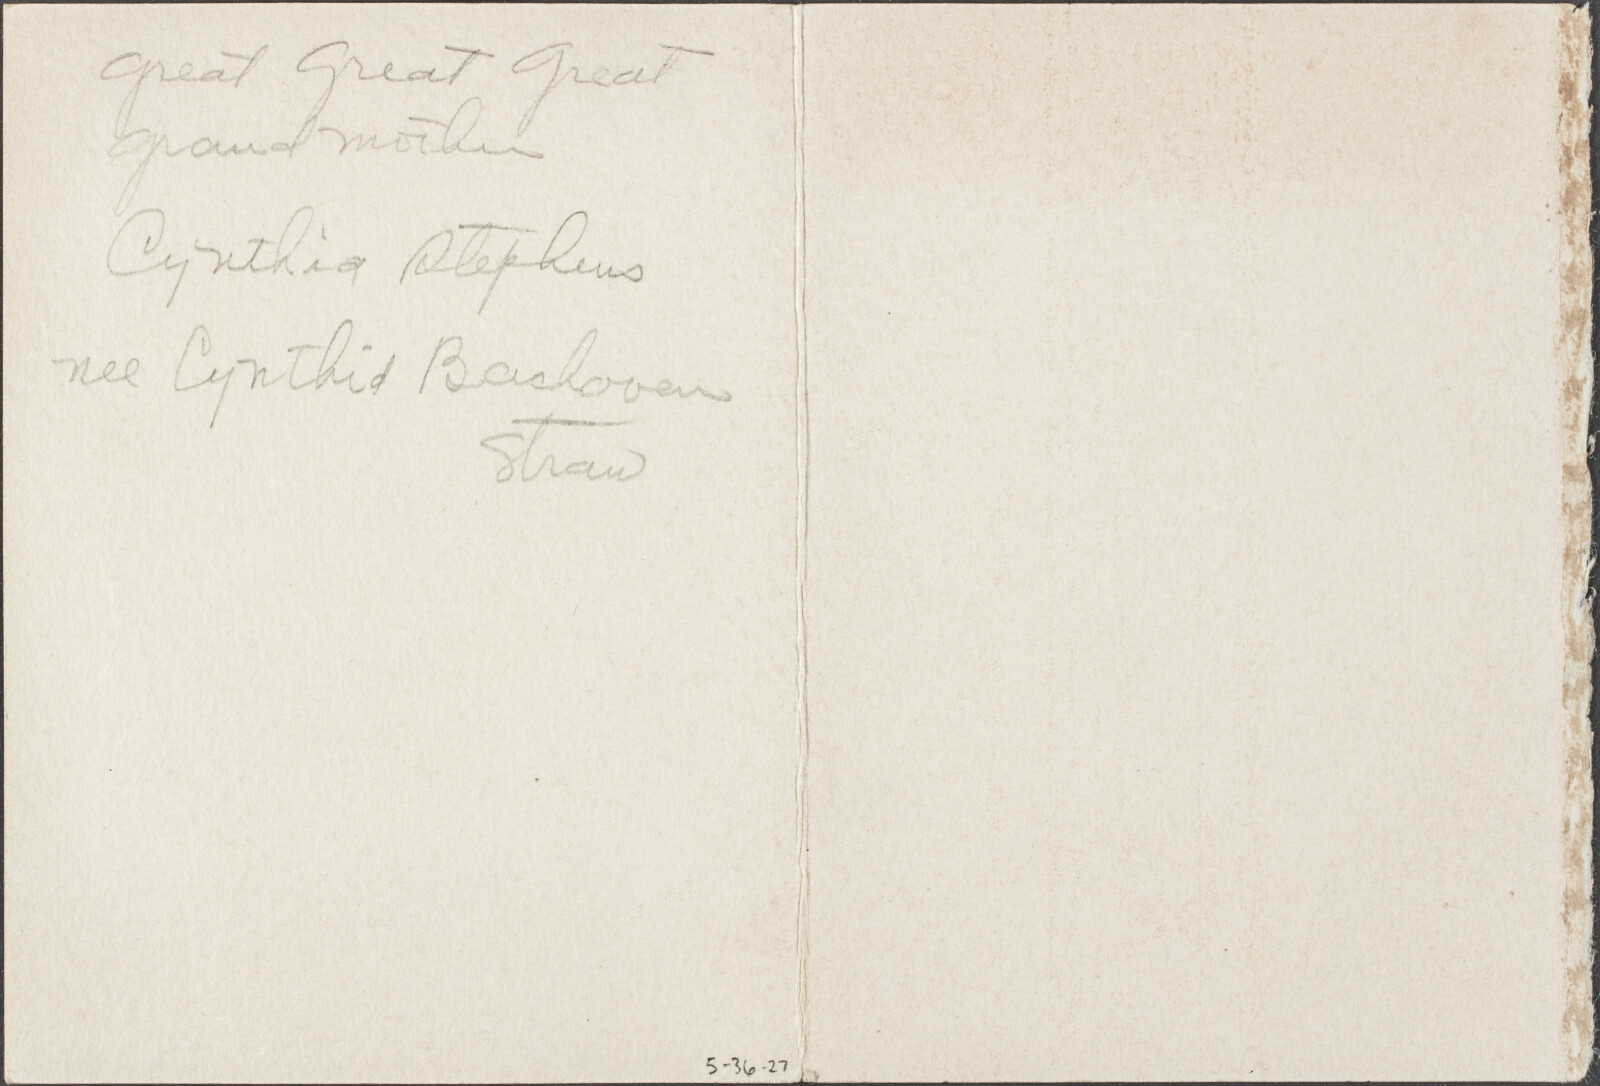 great Great Great
grand mother
Cynthia Stephens
nee Cynthia Bachoven
Straw
5-36-27